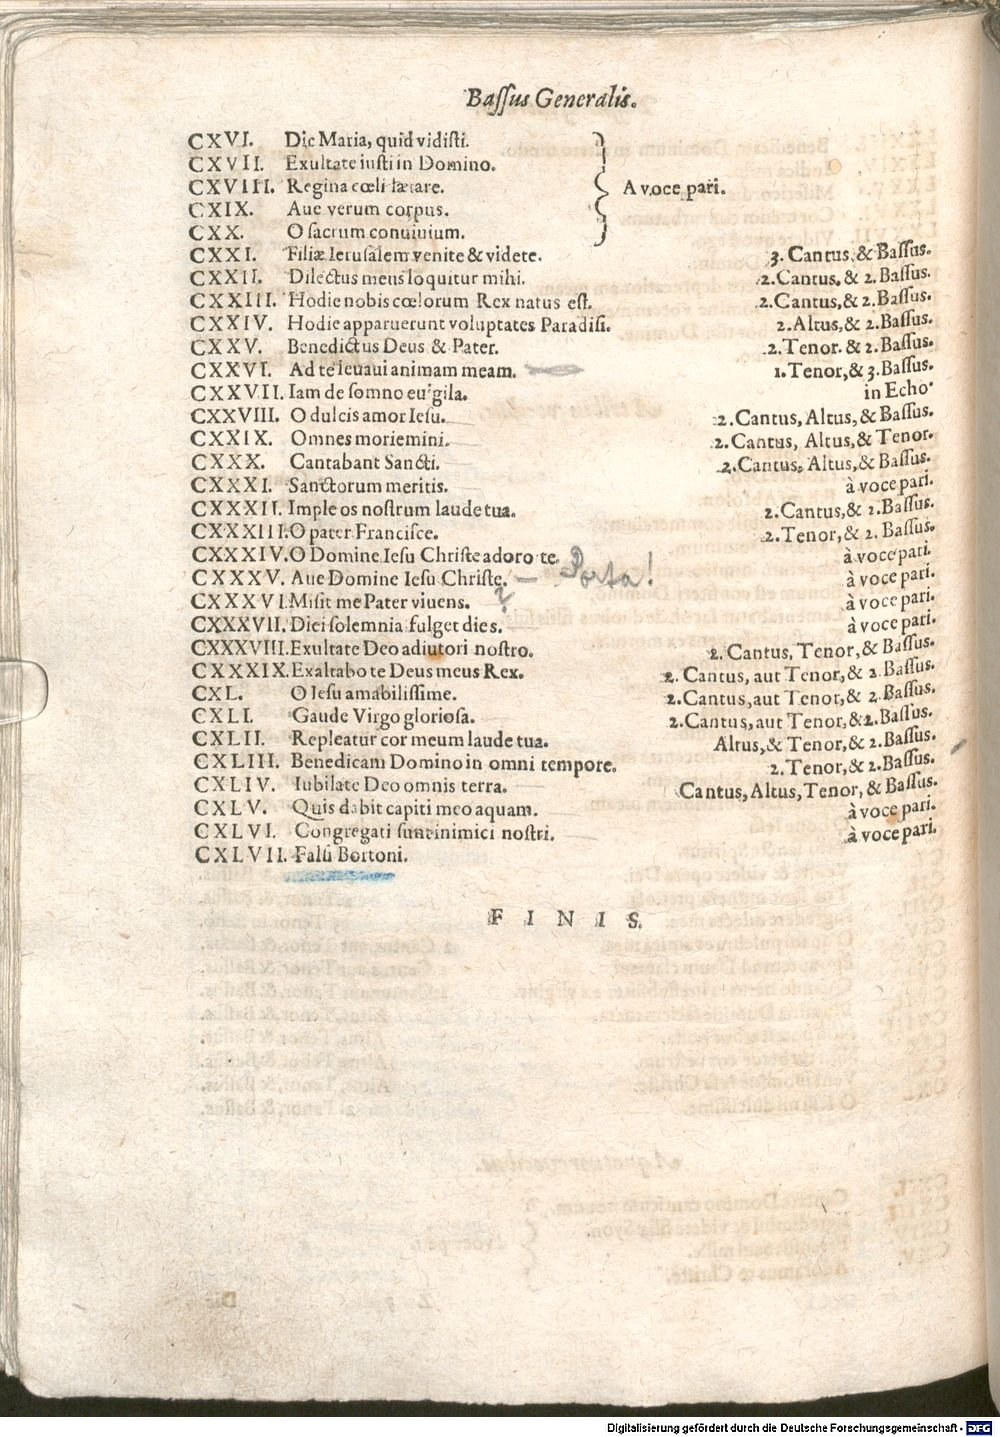 Bassus Generalis.
CXVI. Dic Maria, quid vidisti.
CXVII. Exultate iusti in Domino.
CXVIII. Regina cœli lætare. A voce pari.
CXIX. Aue verum corpus.
CXX. O sacrum conuiuium.
CXXI. Filiæ Ierusalem venite & videte. 3. Cantus, & Bassus.
CXXII. Dilectus meus loquitur mihi. 2. Cantus, & 2. Bassus.
CXXIII. Hodie nobis cœlorum Rex natus est. 2. Cantus, & 2. Bassus.
CXXIV. Hodie apparuerunt voluptates Paradisi. 2. Altus, & 2. Bassus.
CXXV. Benedictus Deus & Pater. 2. Tenor. & 2. Bassus.
CXXVI. Ad te leuaui animam meam. 1. Tenor, & 3. Bassus.
CXXVII. Iam de somno euigila. in Echo.
CXXVIII. O dulcis amor Iesu. 2. Cantus, Altus, & Bassus.
CXXIX. Omnes moriemini. 2. Cantus, Altus, & Tenor.
CXXX. Cantabant Sancti. 2. Cantus, Altus, & Bassus.
CXXXI. Sanctorum meritis. à voce pari.
CXXXII. Imple os nostrum laude tua. 2. Cantus, & 2. Bassus.
CXXXIII. O pater Francisce. 2. Tenor, & 2. Bassus.
CXXXIV. O Domine Iesu Christe adoro te. à voce pari.
CXXXV. Aue Domine Iesu Christe. – Porta! à voce pari.
CXXXVI. Misit me Pater viuens. ? à voce pari.
CXXXVII. Diei solemnia fulget dies. à voce pari.
CXXXVIII. Exultate Deo adiutori nostro. 2. Cantus, Tenor, & Bassus.
CXXXIX. Exaltabo te Deus meus Rex. 2. Cantus, aut Tenor, & 2. Bassus.
CXL. O Iesu amabilissime. 2. Cantus, aut Tenor, & 2. Bassus.
CXLI. Gaude Virgo gloriosa. 2. Cantus, aut Tenor, & 2. Bassus.
CXLII. Repleatur cor meum laude tua. Altus, & Tenor, & 2. Bassus.
CXLIII. Benedicam Domino in omni tempore. 2. Tenor, & 2. Bassus.
CXLIV. Iubilate Deo omnis terra. Cantus, Altus, Tenor, & Bassus.
CXLV. Quis dabit capiti meo aquam. à voce pari.
CXLVI. Congregati sunt inimici nostri. à voce pari.
CXLVII. Falsi Bortoni.
FINIS.
Digitalisierung gefördert durch die Deutsche Forschungsgemeinschaft - DFG